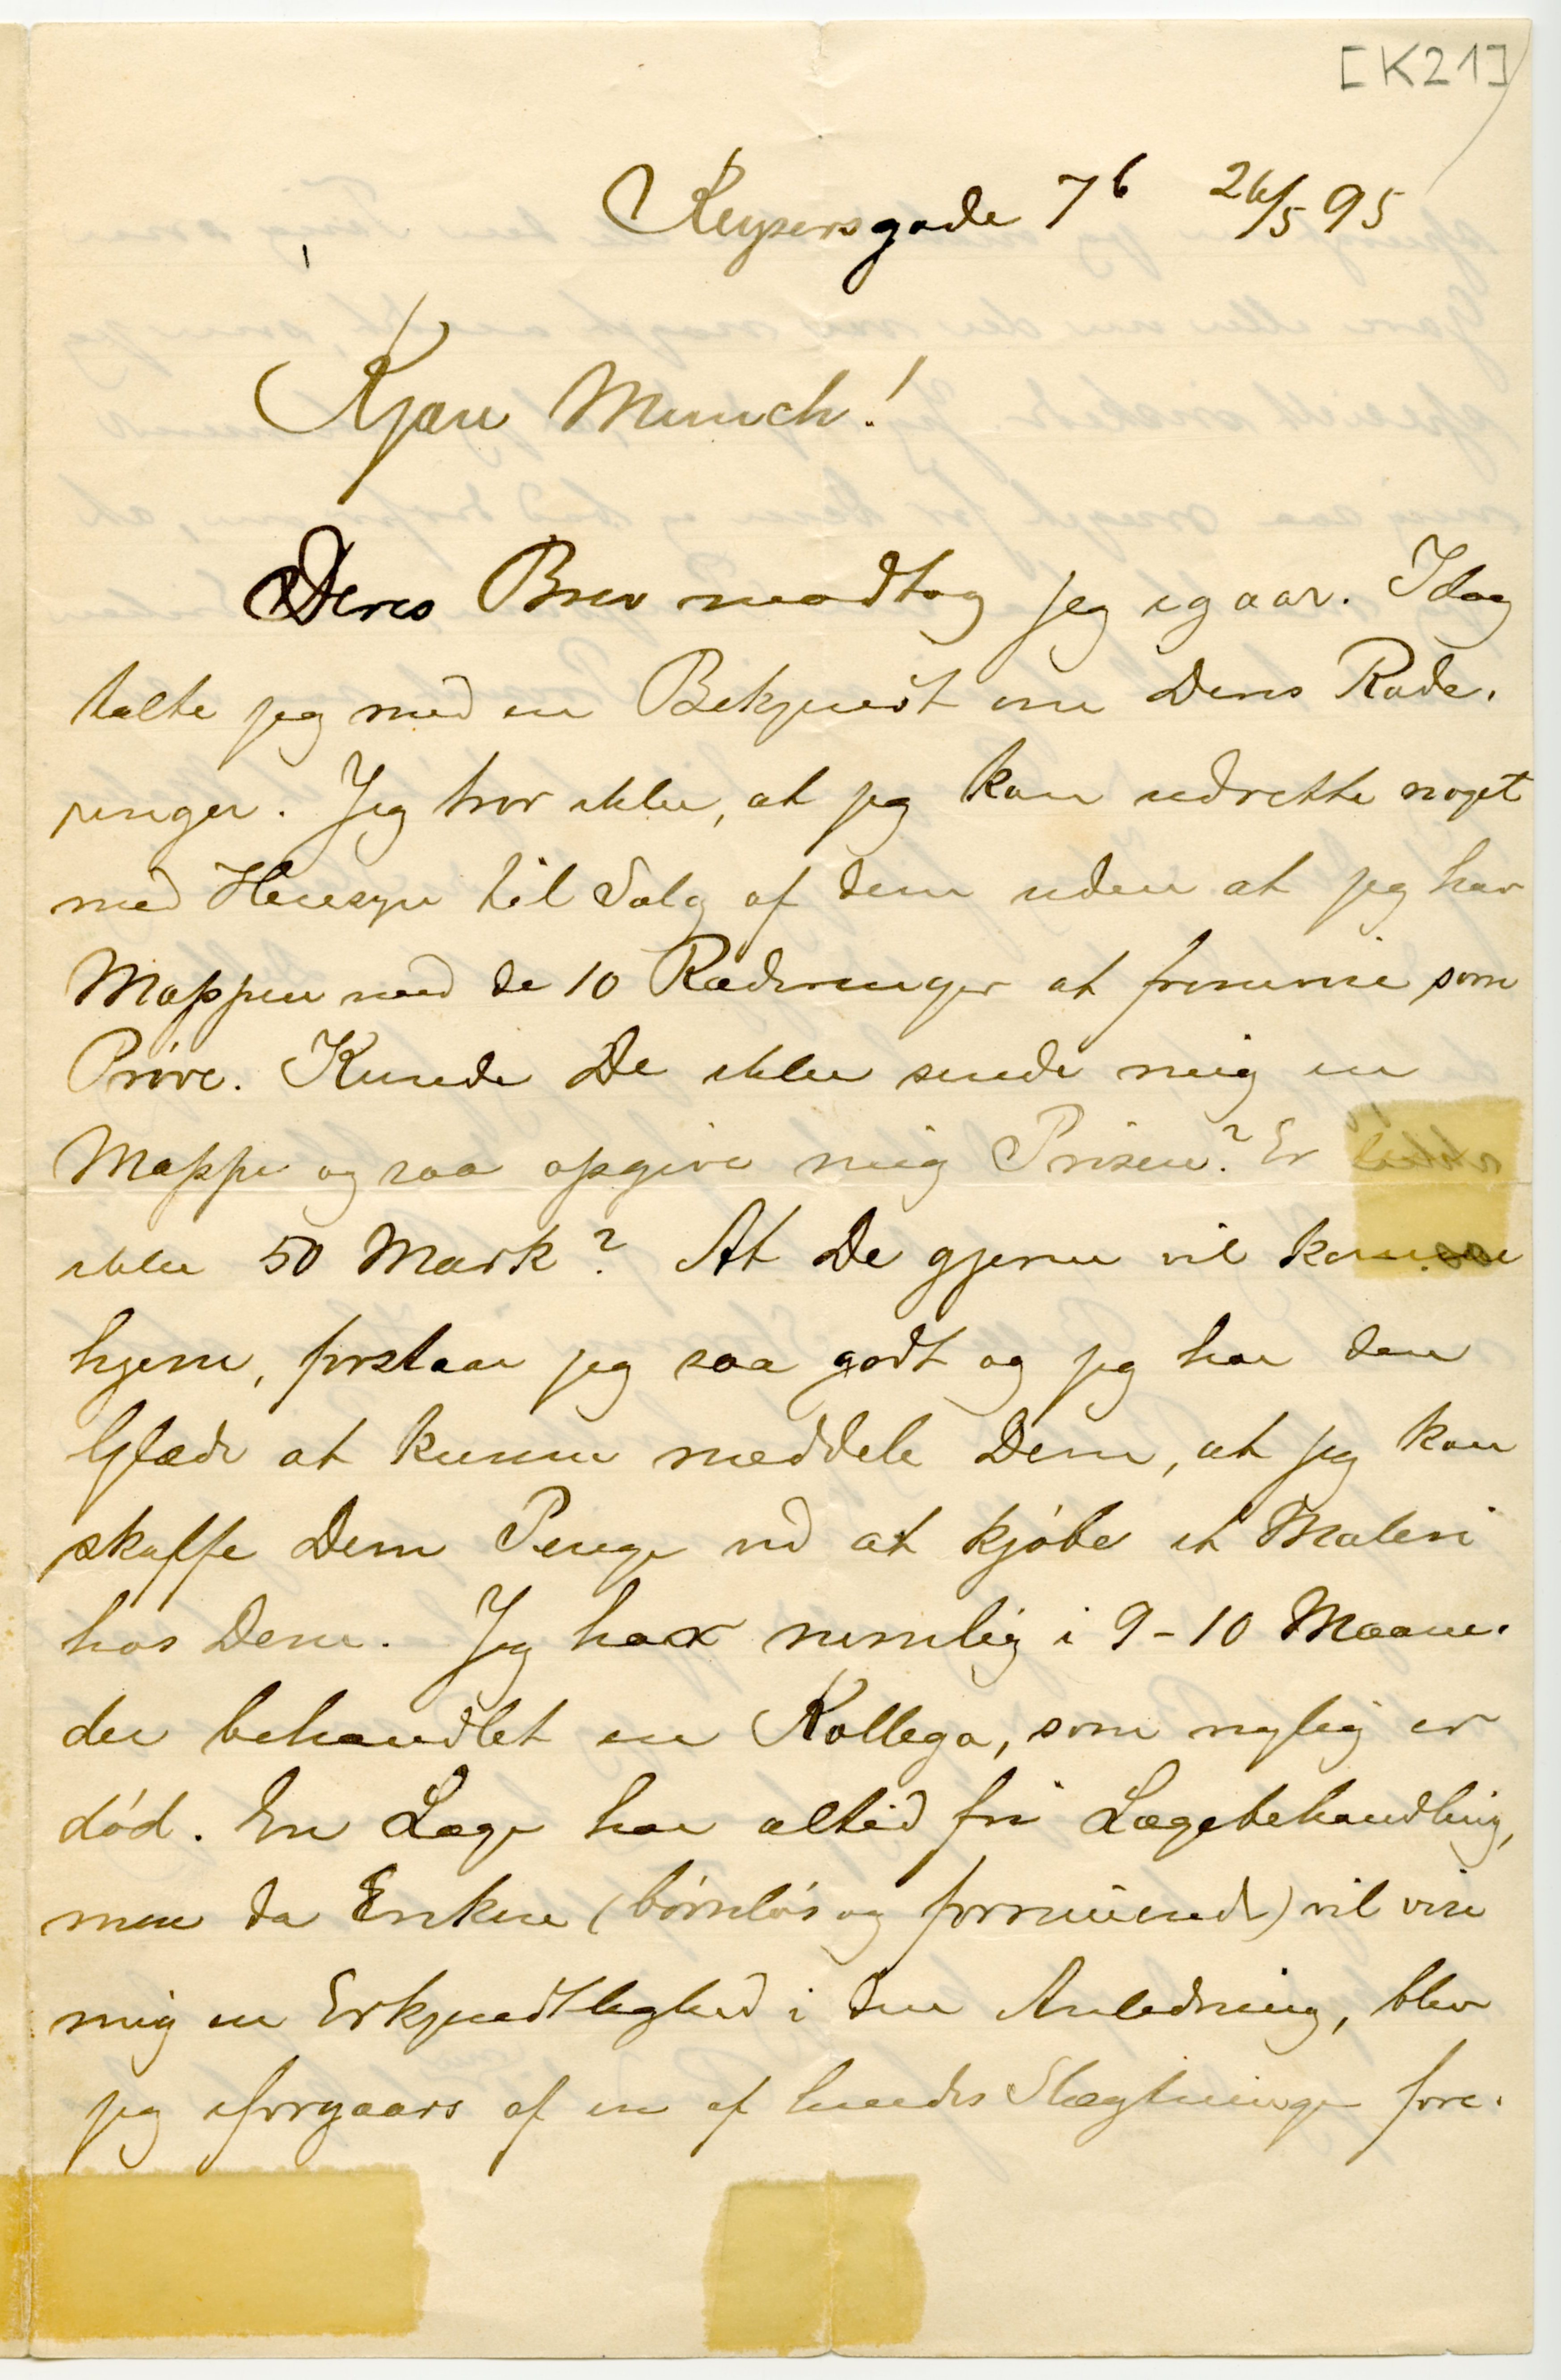 [K21]
Keysersgade 7b 26/5 95
Kjære Munch!
Deres Brev modtog jeg igaar. Idag
talte jeg med en Bekjendt om Deres Rade-
ringer. Jeg tror ikke, at jeg kan udrette noget
med Hensyn til Salg af dem uden at jeg har
Mappen med de 10 Raderinger at fremvise som
Prøve. Kunde De ikke sende mig en
Mappe og saa opgive mig Prisen? Er
ikke 50 Mark? At De gjerne vil komme
hjem, forstaar jeg saa godt og jeg har den
Glæde at kunne meddele Dem, at jeg kan
skaffe Dem Penge ved at kjøbe et Maleri
hos Dem. Jeg har nemlig i 9-10 Maane-
der behandlet en Kollega, som nylig er
død. En Læge har altid fri Lægebehandling,
men da Enken (barnløs og formuende) vil vise
mig en Erkjendtlighed i den Anledning, blev
jeg iforgaars af en af hendes Slægtninge fore-